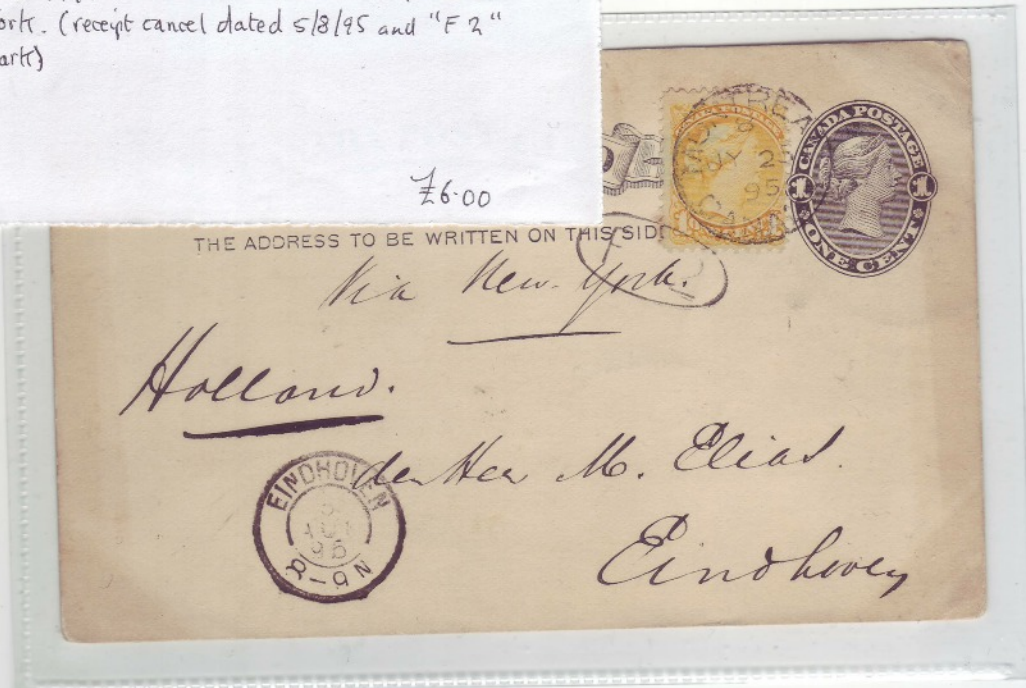 ork. (receipt cancel dated 5/8/95 and "F2"
ark)
£6.00
CANADA POSTAGE
1 1
ONE CENT
MONTREAL
JY 2
95
CANADA
THE ADDRESS TO BE WRITTEN ON THIS SIDE
Via New-York.
Holland.
den Heer M. Elias.
Eindhoven
EINDHOVEN
5
AUG
95
8-9 N